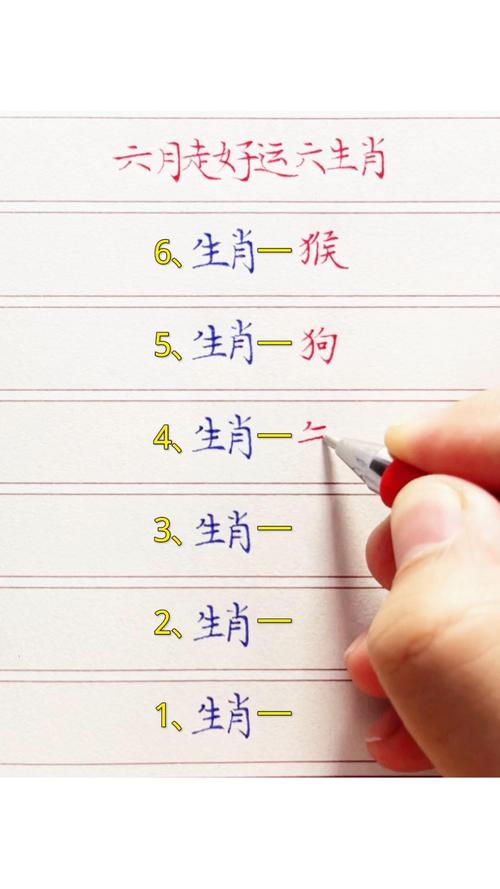 六月走好运六生肖
6、生肖一猴
5、生肖一狗
4、生肖一
3、生肖一
2、生肖一
1、生肖一